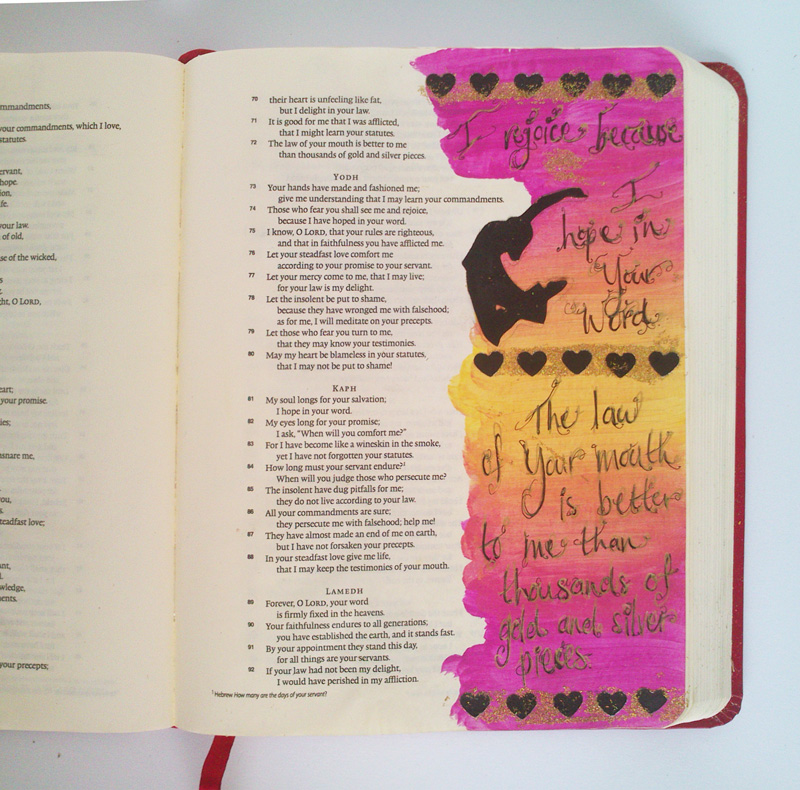 mmandments,
your commandments, which I love,
statutes.
ervant,
hope.
ion,
fe.
your law.
of old,
se of the wicked,
s
ght, O LORD,
eart;
your promise.
ies;
nsnare me,
ou,
eadfast love;
ant,
d.
wledge,
ments.
your precepts;
70 their heart is unfeeling like fat,
but I delight in your law.
71 It is good for me that I was afflicted,
that I might learn your statutes.
72 The law of your mouth is better to me
than thousands of gold and silver pieces.
YODH
73 Your hands have made and fashioned me;
give me understanding that I may learn your commandments.
74 Those who fear you shall see me and rejoice,
because I have hoped in your word.
75 I know, O LORD, that your rules are righteous,
and that in faithfulness you have afflicted me.
76 Let your steadfast love comfort me
according to your promise to your servant.
77 Let your mercy come to me, that I may live;
for your law is my delight.
78 Let the insolent be put to shame,
because they have wronged me with falsehood;
as for me, I will meditate on your precepts.
79 Let those who fear you turn to me,
that they may know your testimonies.
80 May my heart be blameless in your statutes,
that I may not be put to shame!
KAPH
81 My soul longs for your salvation;
I hope in your word.
82 My eyes long for your promise;
I ask, "When will you comfort me?"
83 For I have become like a wineskin in the smoke,
yet I have not forgotten your statutes.
84 How long must your servant endure?1
When will you judge those who persecute me?
85 The insolent have dug pitfalls for me;
they do not live according to your law.
86 All your commandments are sure;
they persecute me with falsehood; help me!
87 They have almost made an end of me on earth,
but I have not forsaken your precepts.
88 In your steadfast love give me life,
that I may keep the testimonies of your mouth.
LAMEDH
89 Forever, O LORD, your word
is firmly fixed in the heavens.
90 Your faithfulness endures to all generations;
you have established the earth, and it stands fast.
91 By your appointment they stand this day,
for all things are your servants.
92 If your law had not been my delight,
I would have perished in my affliction.
1 Hebrew How many are the days of your servant?
I rejoice because
I
hope in
Your
Word.
The law
of Your mouth
is better
to me than
thousands of
gold and silver
pieces.